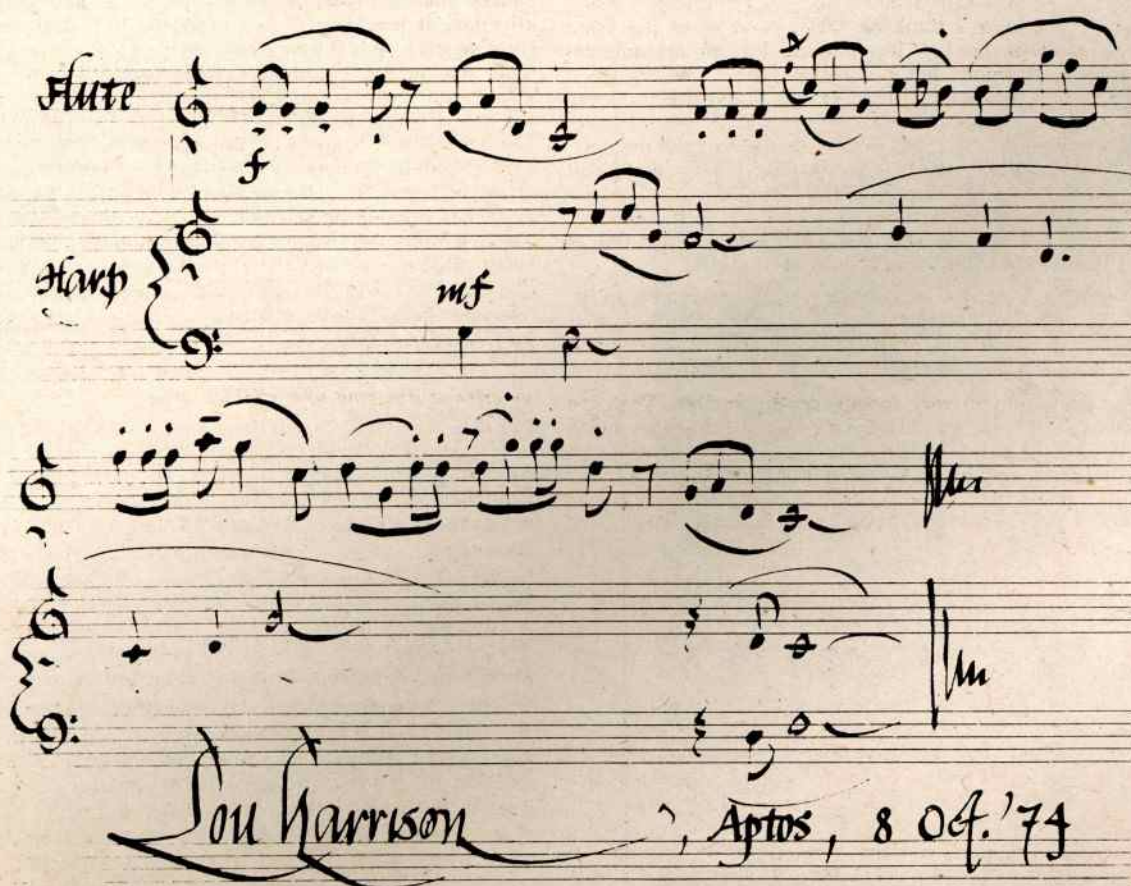 Flute
f
Harp
mf
Lou Harrison, Aptos, 8 Oct. '74